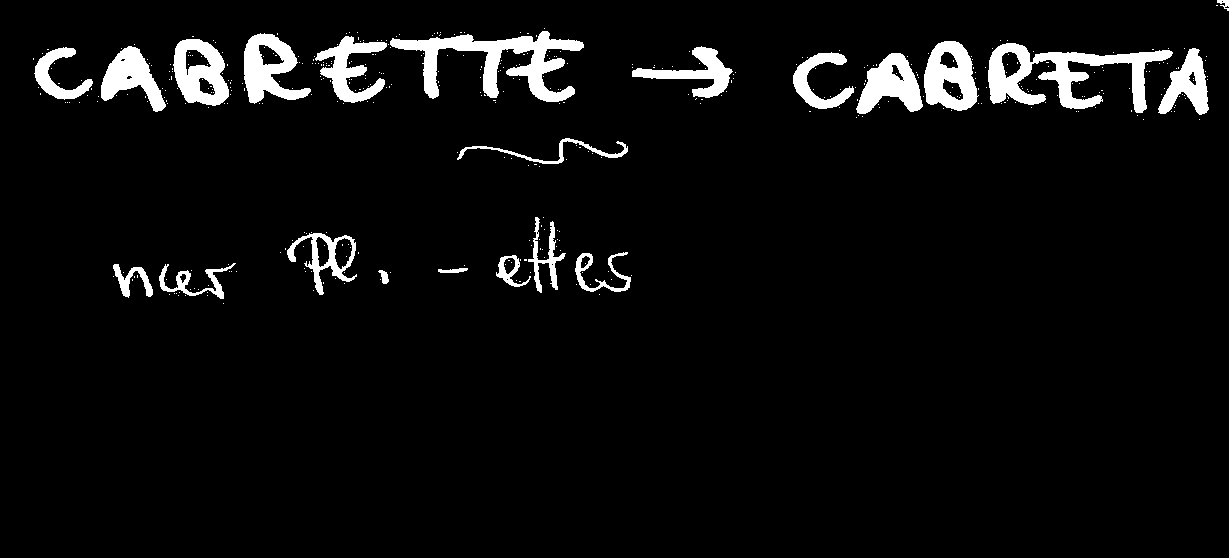 CABRETTE → CABRETA
nur Pl. - ettes